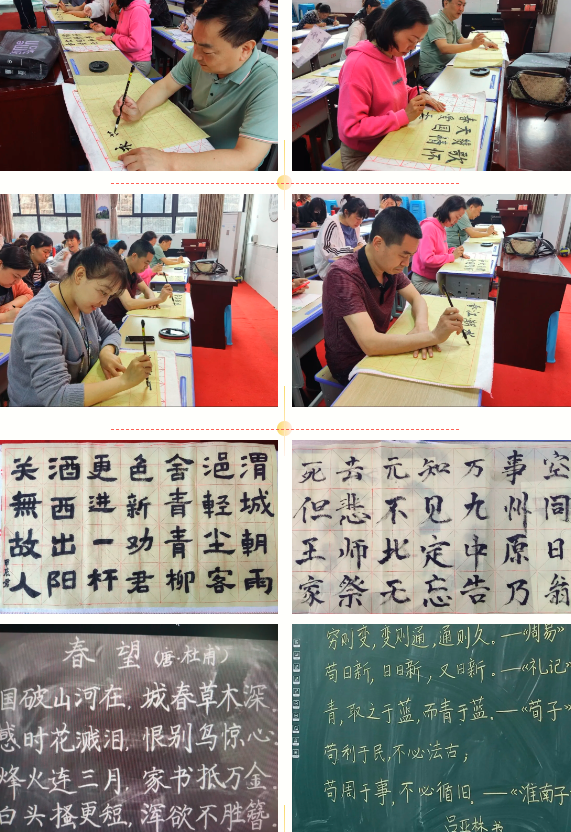 渭城朝雨
浥輕尘客
舍青青柳
色新劝君
更進一杯
酒西出阳
关無故人
死去元知万事空
但悲不见九州同
王师北定中原日
家祭无忘告乃翁
春望(唐·杜甫)
国破山河在,城春草木深.
感时花溅泪,恨别鸟惊心
烽火连三月,家书抵万金.
白头搔更短,浑欲不胜簪.
穷则变,变则通,通则久。—《周易》
苟日新,日日新,又日新。—《礼记》
青,取之于蓝,而青于蓝.—《荀子》
苟利于民,不必法古;
苟周于事,不必循旧.—《淮南子